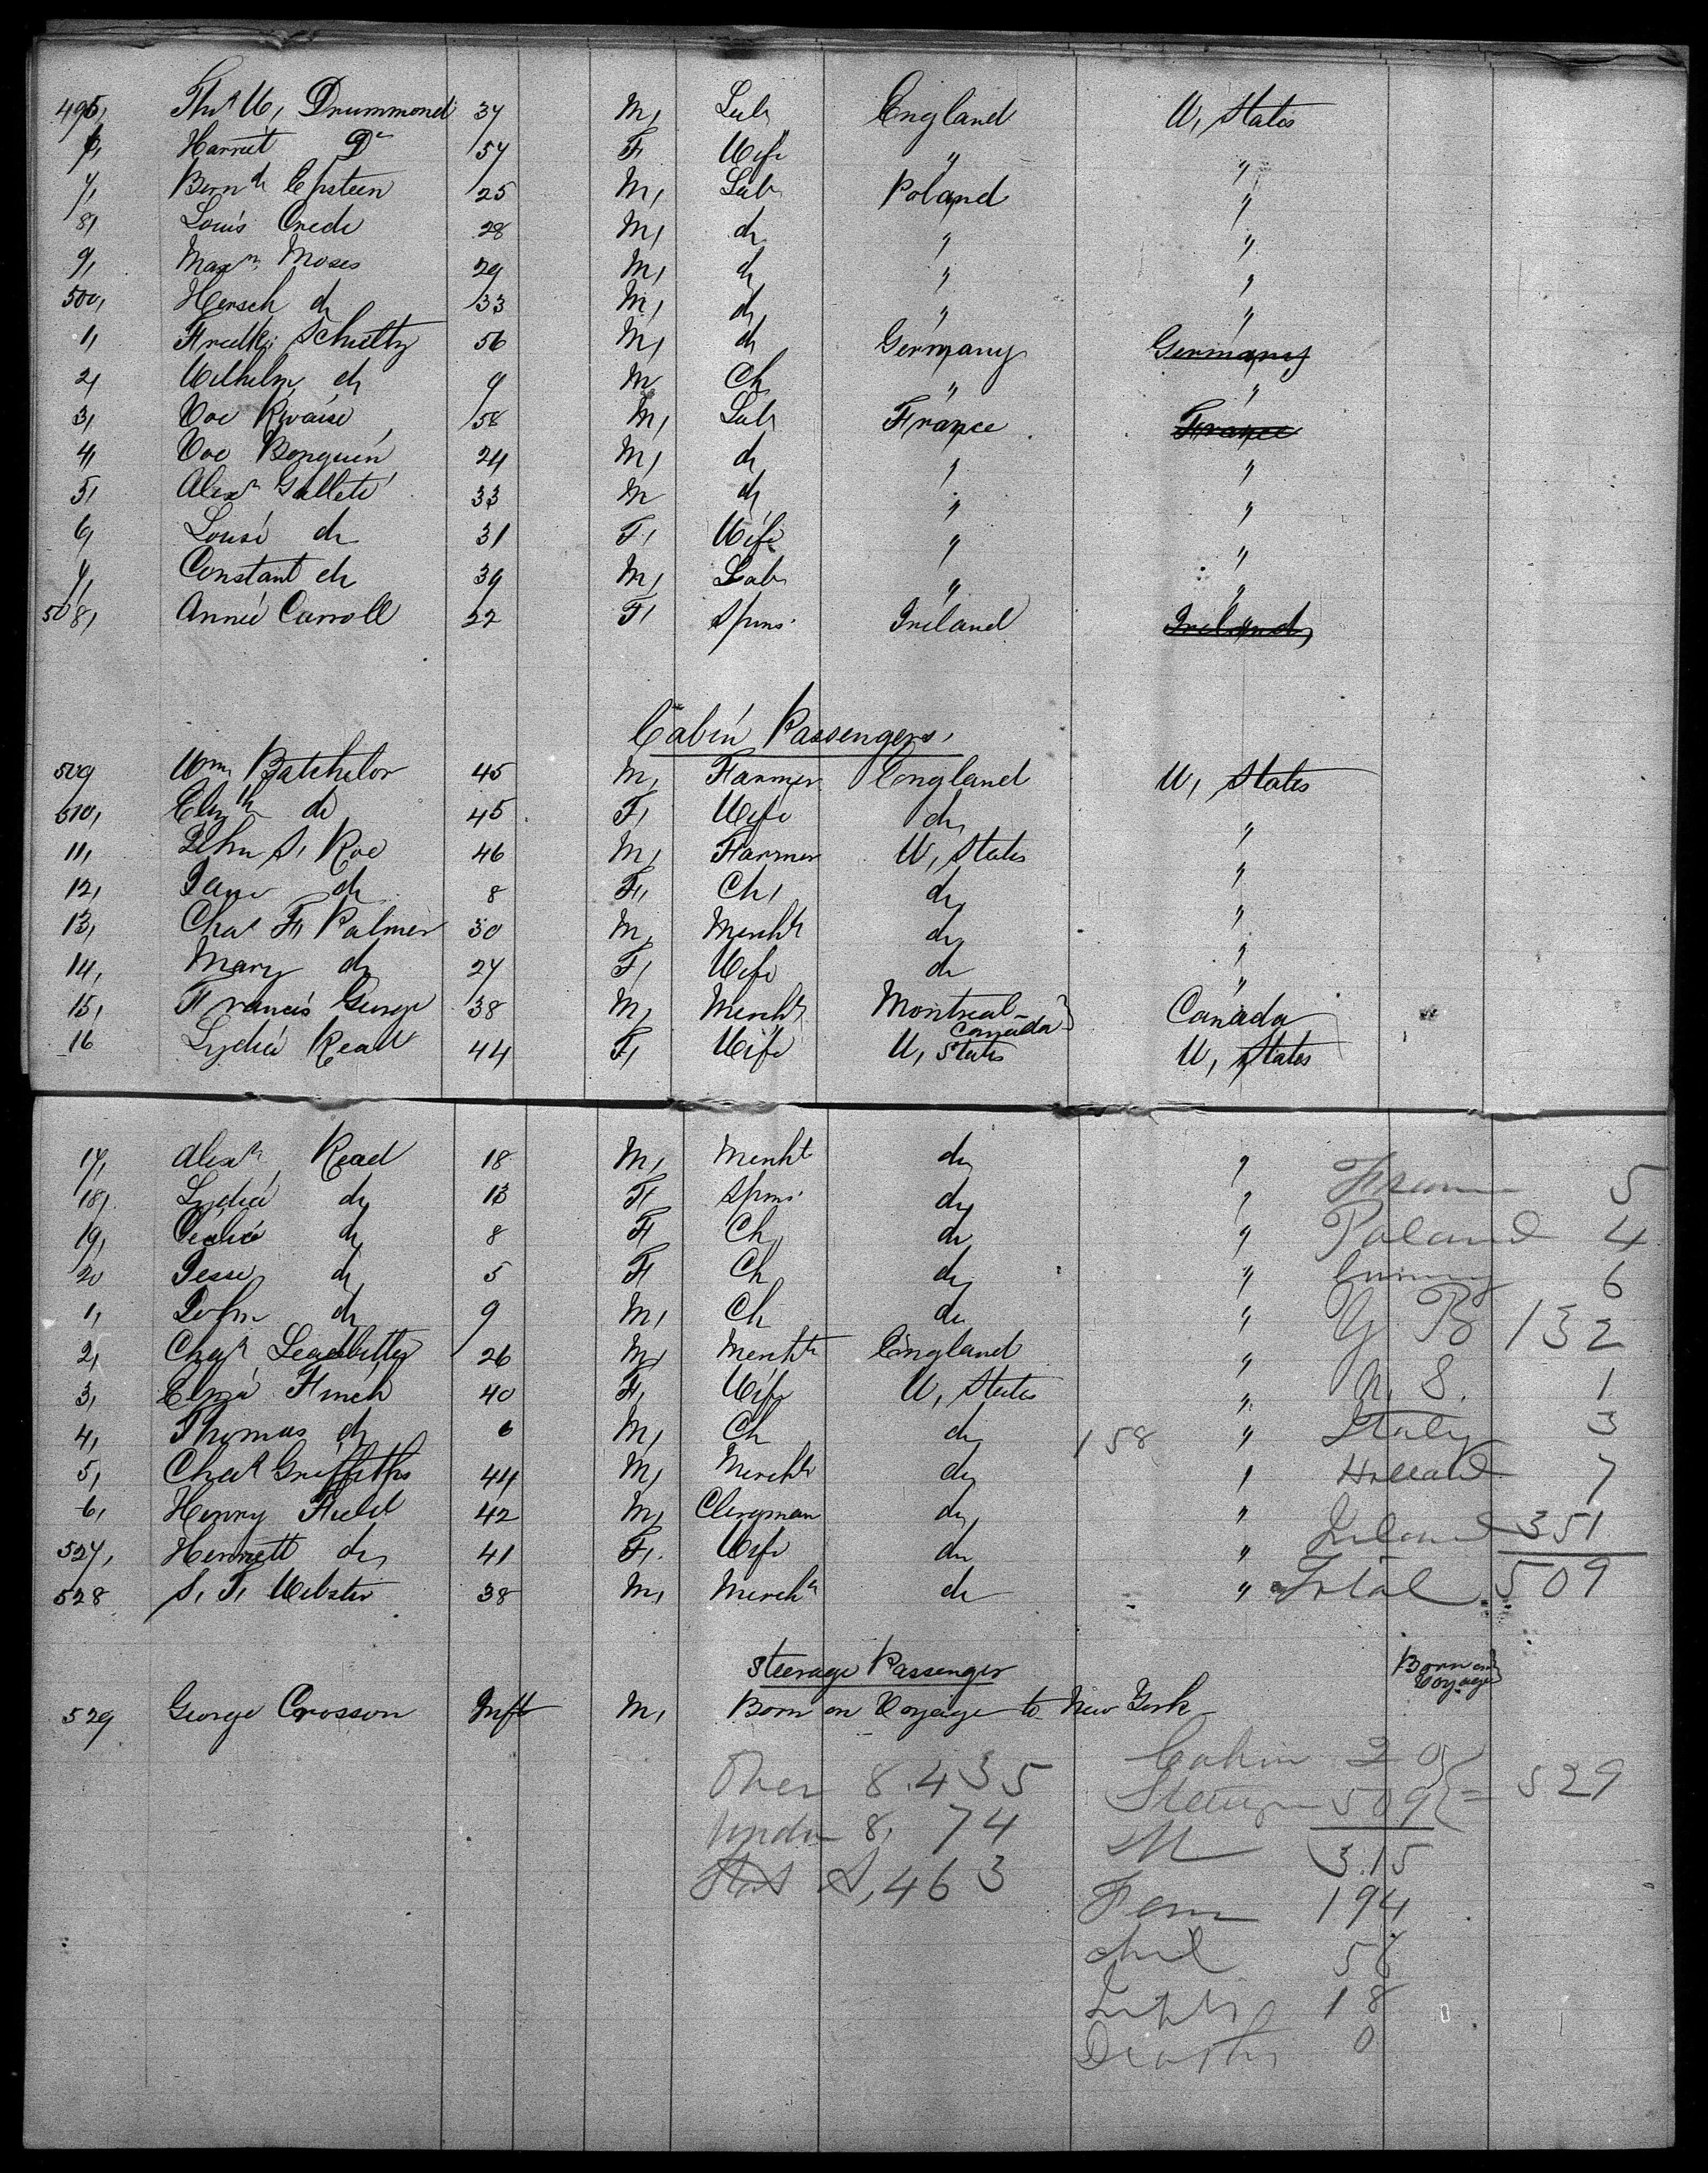 495, Thos W, Drummond 37 M, Lab England U, States
6, Harriet Do 57 F Wife " "
7, Bernd Epstein 25 M, Lab Poland "
8, Louis Crede 28 M, do " "
9, Maxn Moses 29 M, do " "
500, Hersch do 33 M, do " "
1, Fredk Schultz 56 M, do Germany Germany
2, Wilhelm do 9 M Ch " "
3, 58 M, Lab France France
4, 24 M, do " "
5, Alexr Gallete 33 M do " "
6, Lousi do 31 F, Wife " "
7, Constant do 39 M, Lab " "
508, Annie Carroll 22 F, Spins Ireland Ireland
Cabin Passengers,
509 Wm Batchelor 45 M, Farmer England U, States
510, Elizth do 45 F, Wife do "
11, John S, Roe 46 M, Farmer U, States "
12, Jane do 8 F, Ch, do "
13, Chas F, Palmer 30 M, Mercht do "
14, Mary do 27 F, Wife do "
15, Francis George 38 M, Mercht Montreal - Canada } Canada
16 Lydia Read 44 F, Wife U, States U, States
17, Alexr Read 18 M, Mercht do "
18, Lydia do 13 F Spins do "
19, do 8 F Ch do "
20 Jesse do 5 F Ch do "
1, John do 9 M, Ch do "
2, Chas Leadbitter 26 M, Mercht England "
3, Eliza Finch 40 F, Wife U, States "
4, Thomas do 6 M, Ch do "
5, Chas Griffiths 44 M, Mercht do "
6, Henry Field 42 M, Clergman do "
527, Henriett do 41 F. Wife do "
528 S, F, Webster 38 M, Mercht do "
France 5
Poland 4
Germany 6
G B 132
1
Italy 3
Holland 7
158
Ireland 351
Total 509
Steerage Passenger
Born on Voyage
529 George Crosson Inft M, Born on Voyage to New York
Over 8. 435
Under 8, 74
463
Cabin 20
Steerage 509 } = 529
M 315
Fem 194
Chil 56
Infts 18
Deaths 0